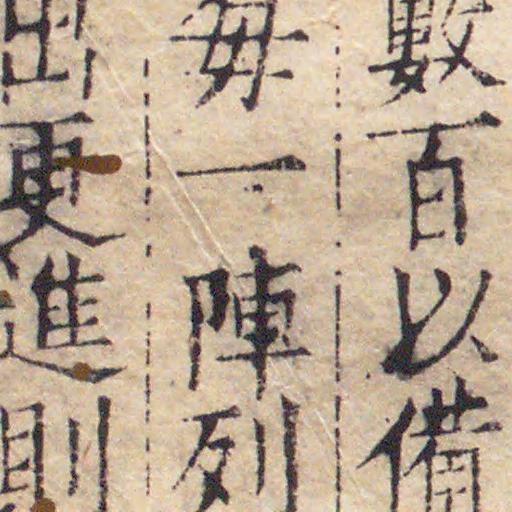 數百以備
毎一陣列
出更進則